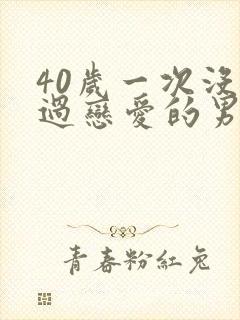 40歲一次沒
過戀愛的男
青春粉紅兔